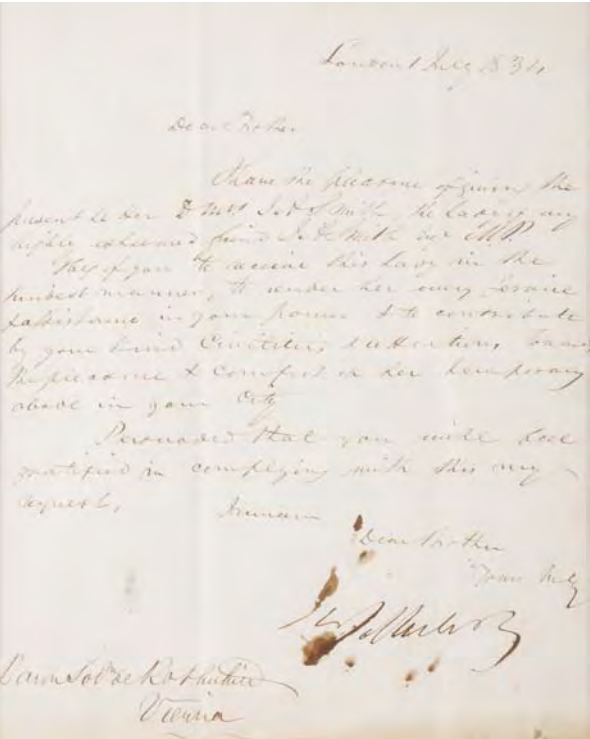 London 1 July 1834
Dear Brother
I have the pleasure of giving the
present letter to Mrs J. A. Smith, the Lady of my
highly esteemed friend J. A. Smith MP.
I beg of you to receive this Lady in the
kindest manner, to render her every service
& assistance in your power & to contribute
by your kind Civilities & attentions towards
the pleasure & comfort of her temporary
abode in your City
Persuaded that you will feel
gratified in complying with this my
request,
I remain
Dear Brother
Yours truly
de Rothschild
Vienna